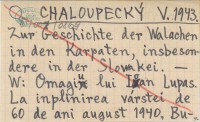 CHALOUPECKÝ V. 1943.
Zur Geschichte der Walachen
in den Karpaten, insbeson-
dere in der Slovakei. —
W: Omagiu lui Ioan Lupas.
La inplinirea varstei de
60 de ani august 1940. Bu-